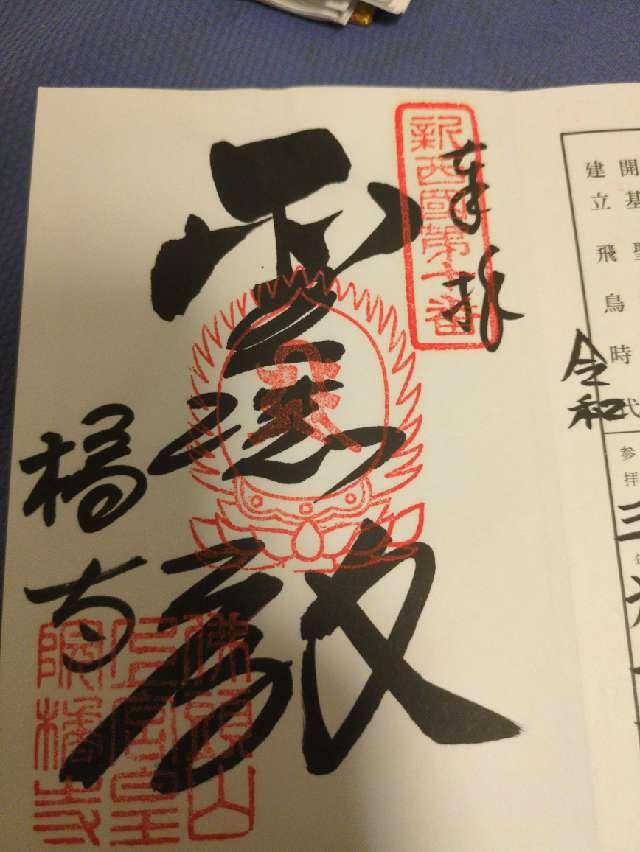 開基 聖
建立 飛鳥時代
令和
参拝
三
奉拝
新西國第十番
聖徳殿
橘寺
佛頭山
上宮皇
院橘寺